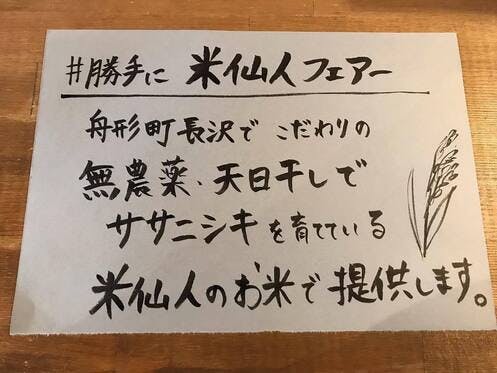 #勝手に 米仙人フェアー
舟形町長沢で こだわりの
無農薬、天日干しで
ササニシキを育てている
米仙人のお米で提供します。